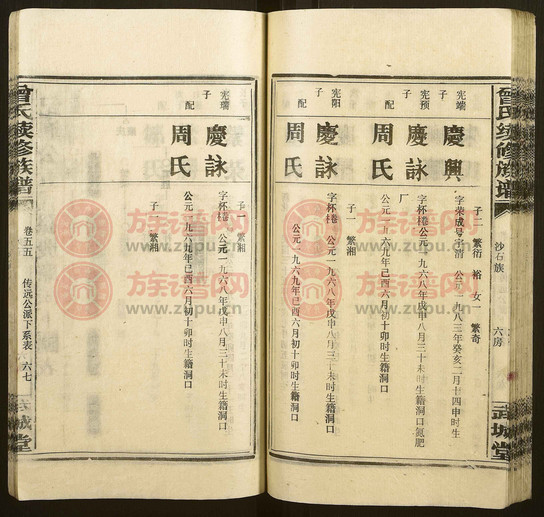 曾氏续修族谱
沙石族
六房
武城堂
宪端
子
慶興
字荣成号子清 公元一九八三年癸亥二月廿四申时生
子二 繁衍 裕 女一 繁奇
宪预
子
慶詠
字怀棬 公元一九六八年戊申八月三十未时生籍洞口氮肥
厂
配
周氏
公元一九六九年己酉六月初十卯时生籍洞口
子一 繁湘
宪阳
子
慶詠
字怀棬 公元一九六八年戊申八月三十未时生籍洞口
配
周氏
公元一九六九年己酉六月初十卯时生籍洞口
子一 繁湘
宪瑞
子
慶詠
字怀棬 公元一九六八年戊申八月三十未时生籍洞口
配
周氏
公元一九六九年己酉六月初十卯时生籍洞口
子一 繁湘
曾氏续修族谱
卷五五
传远公派下系表
六七
武城堂
族谱网
www.zupu.cn
族谱网
www.zupu.cn
族谱网
www.zupu.cn
族谱网
www.zupu.cn